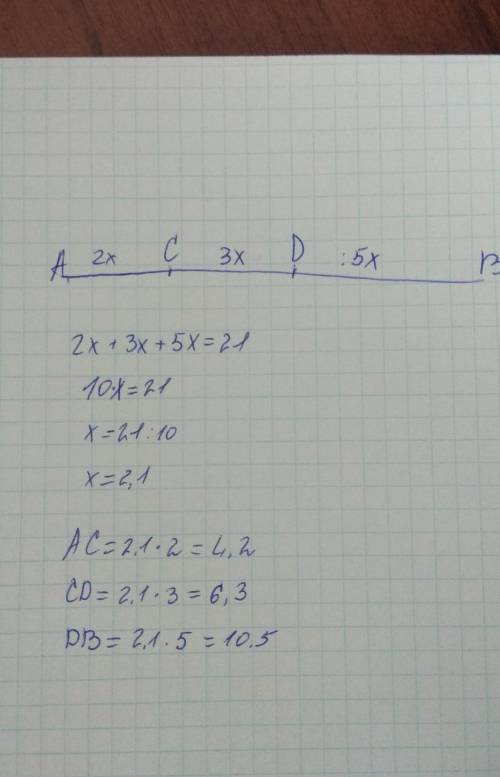 A 2x C 3x D :5x B
2x+3x+5x=21
10x=21
x=21:10
x=2,1
AC=2,1·2=4,2
CD=2,1·3=6,3
DB=2,1·5=10.5